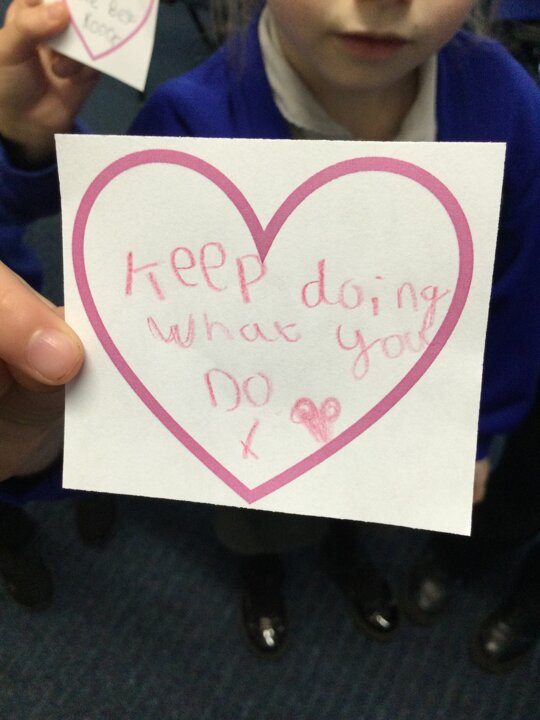 Keep doing
what you
DO
x